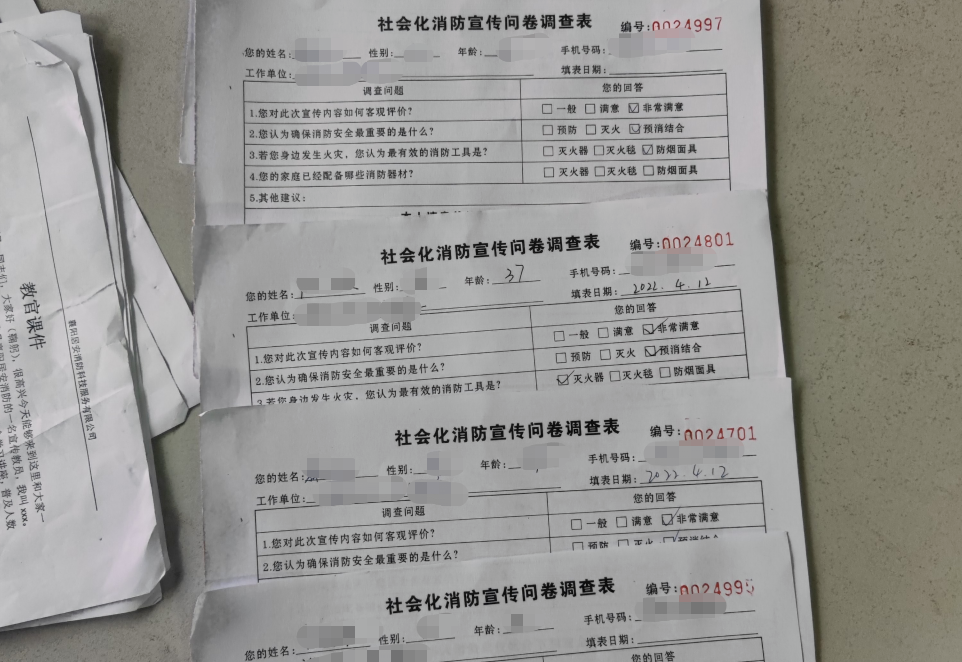 社会化消防宣传问卷调查表 编号:0024997
您的姓名: 性别: 年龄: 手机号码:
工作单位: 填表日期:
调查问题 您的回答
1.您对此次宣传内容如何客观评价? □一般 □满意 ☑非常满意
2.您认为确保消防安全最重要的是什么? □预防 □灭火 ☑预消结合
3.若您身边发生火灾,您认为最有效的消防工具是? □灭火器 □灭火毯 ☑防烟面具
4.您的家庭已经配备哪些消防器材? □灭火器 □灭火毯 □防烟面具
5.其他建议:
社会化消防宣传问卷调查表 编号:0024801
您的姓名: 性别: 年龄: 37 手机号码:
工作单位: 填表日期: 2022.4.12
调查问题 您的回答
1.您对此次宣传内容如何客观评价? □一般 □满意 ☑非常满意
2.您认为确保消防安全最重要的是什么? □预防 □灭火 ☑预消结合
3.若您身边发生火灾,您认为最有效的消防工具是? ☑灭火器 □灭火毯 □防烟面具
社会化消防宣传问卷调查表 编号:0024701
您的姓名: 性别: 年龄: 手机号码:
工作单位: 填表日期: 2022.4.12
调查问题 您的回答
1.您对此次宣传内容如何客观评价? □一般 □满意 ☑非常满意
2.您认为确保消防安全最重要的是什么? □预防 □灭火 ☑预消结合
社会化消防宣传问卷调查表 编号:0024995
您的姓名: 性别: 年龄: 手机号码:
填表日期:
您的回答
襄阳居安消防科技服务有限公司
教官课件
大家好(鞠躬),很高兴今天能够来到这里和大家一
居安消防的一名宣传教员,我叫xxx。